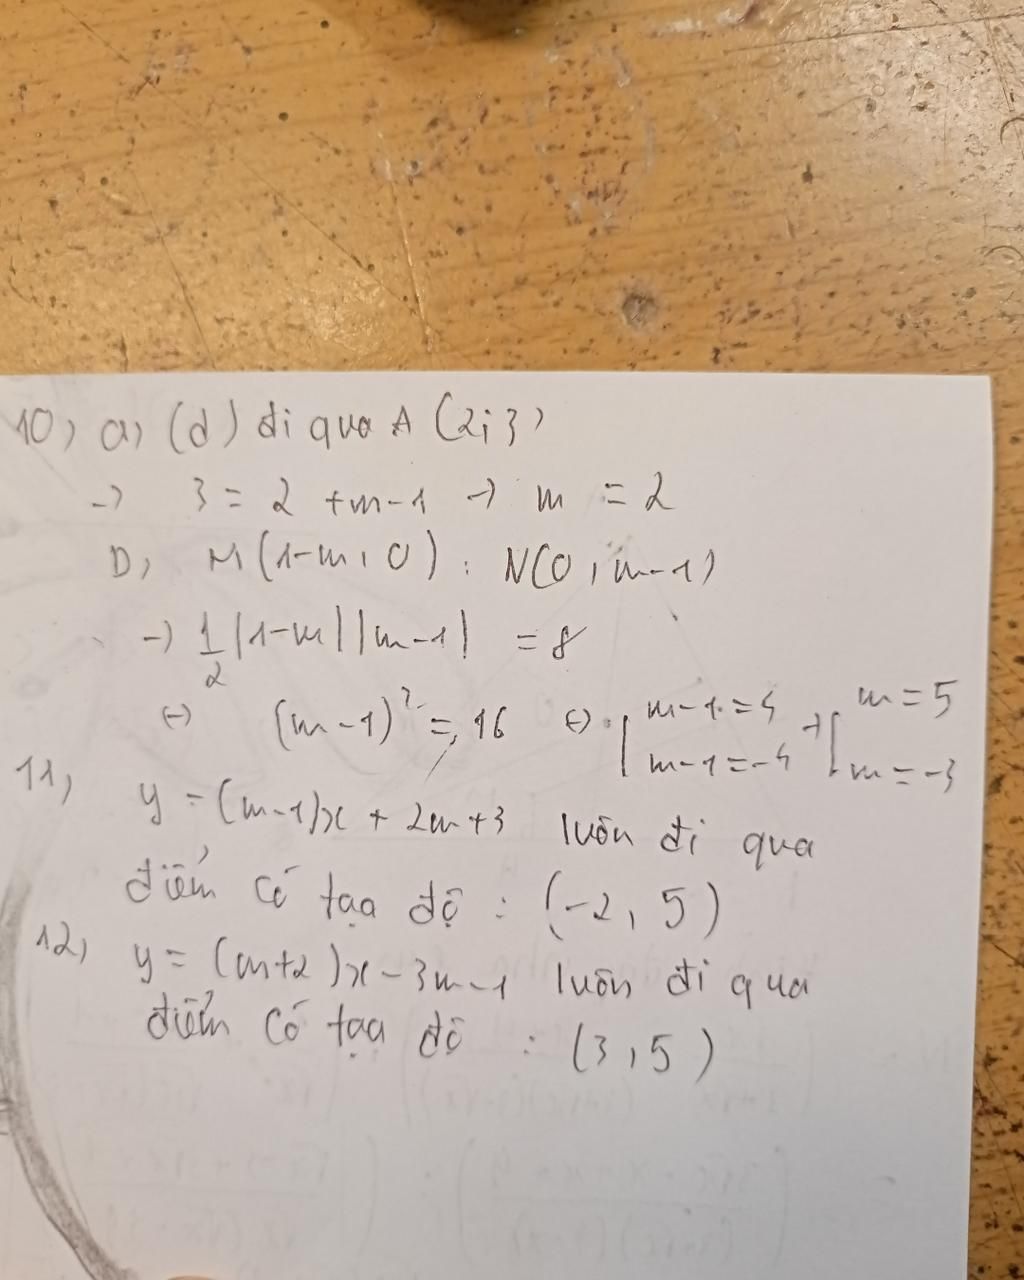 10, a, (d) đi qua A (2; 3)
-> 3 = 2 + m - 1 -> m = 2
b, M (1-m, 0) ; N(0, m-1)
-> 1/2 |1-m| |m-1| = 8
<-> (m-1)² = 16 <-> [ m-1 = 4 -> [ m = 5
m-1 = -4 m = -3
11, y = (m-1)x + 2m+3 luôn đi qua
điểm có tọa độ : (-2, 5)
12, y = (m+2)x - 3m-1 luôn đi qua
điểm có tọa độ : (3, 5)